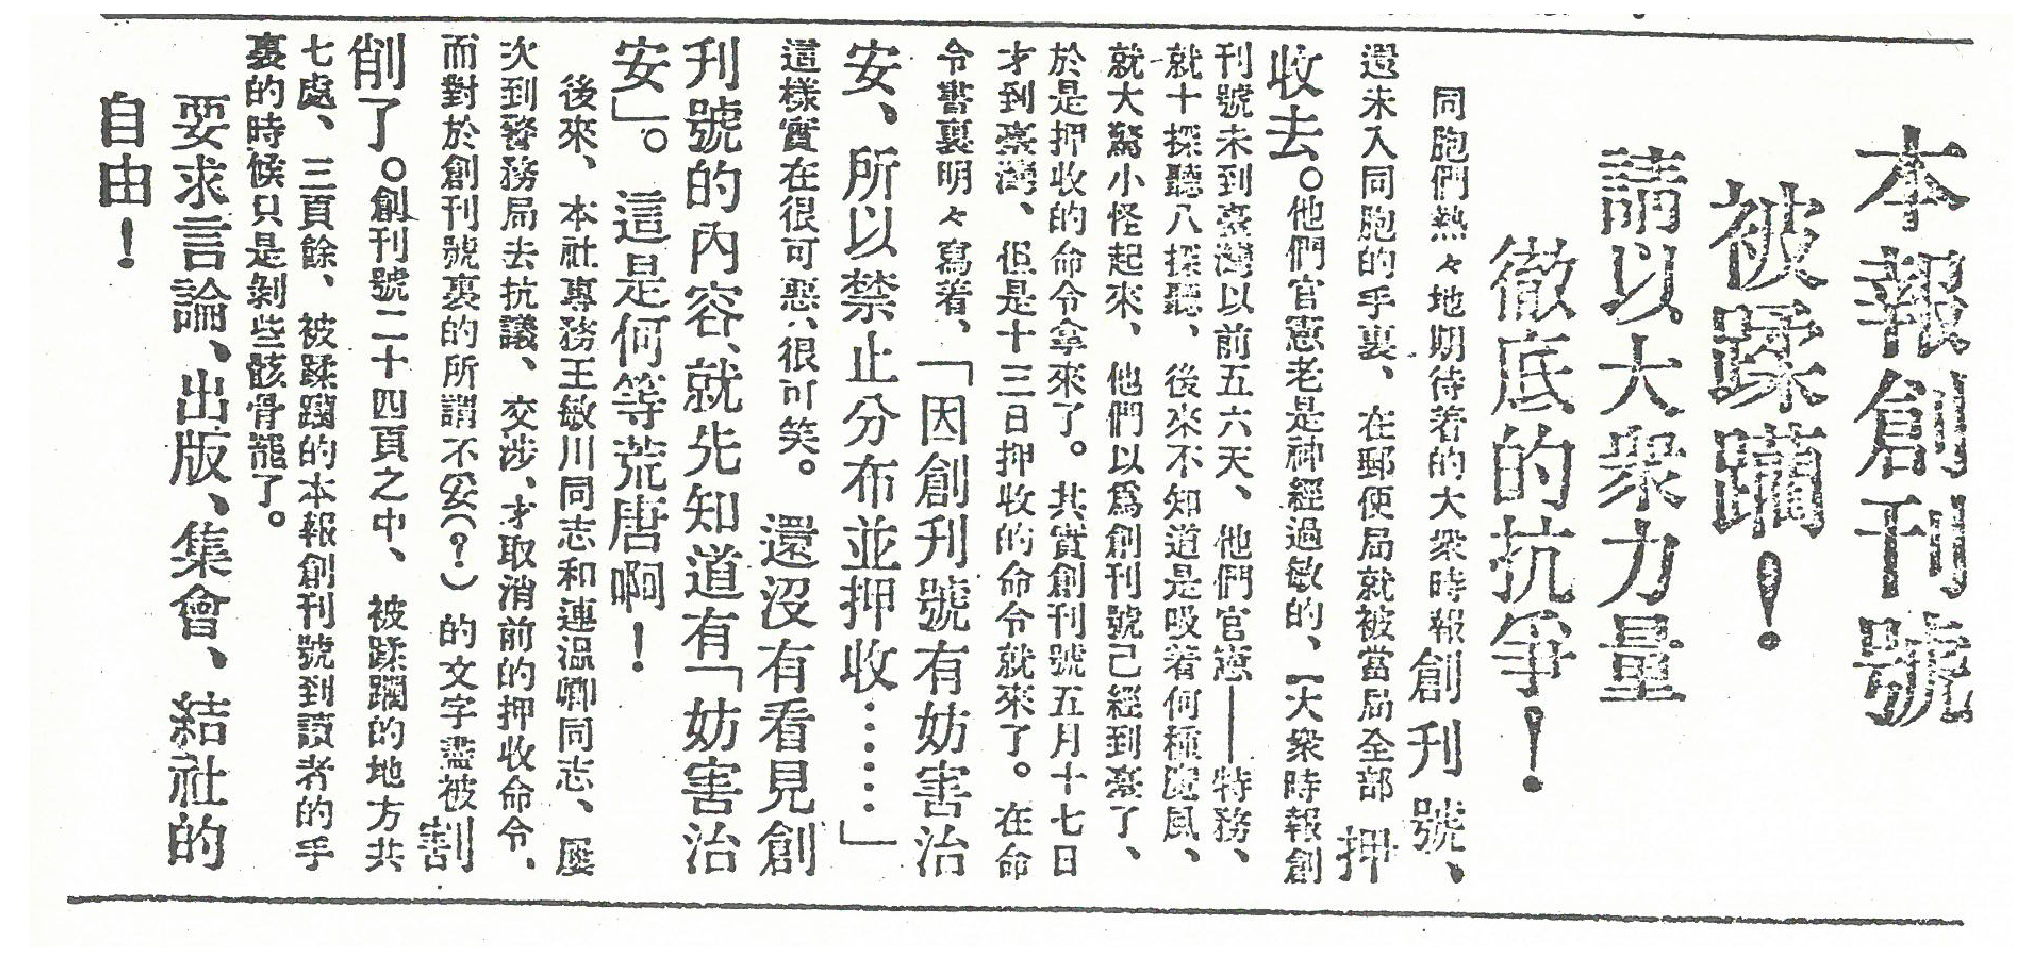 本報創刊號
被蹂躪！
請以大衆力量
徹底的抗爭！
同胞們熱々地期待着的大衆時報創刊號、
還未入同胞的手裏、在郵便局就被當局全部押
收去。他們官憲老是神經過敏的、「大衆時報創
刊號未到臺灣以前五六天、他們官憲——特務、
就十探聽八探聽、後來不知道是吸着何種瘋風、
就大驚小怪起來、他們以爲創刊號已經到臺了、
於是押收的命令拿來了。其實創刊號五月十七日
才到臺灣、但是十三日押收的命令就來了。在命
令書裏明々寫着、「因創刊號有妨害治
安、所以禁止分布並押收……」
這樣實在很可惡、很可笑。還沒有看見創
刊號的內容、就先知道有「妨害治
安」。這是何等荒唐啊！
後來、本社專務王敏川同志和連溫卿同志、屢
次到警務局去抗議、交涉、才取消前的押收命令、
而對於創刊號裏的所謂不妥（？）的文字盡被割
削了。創刊號二十四頁之中、被蹂躪的地方共
七處、三頁餘、被蹂躪的本報創刊號到讀者的手
裏的時候只是剝些骸骨罷了。
要求言論、出版、集會、結社的
自由！